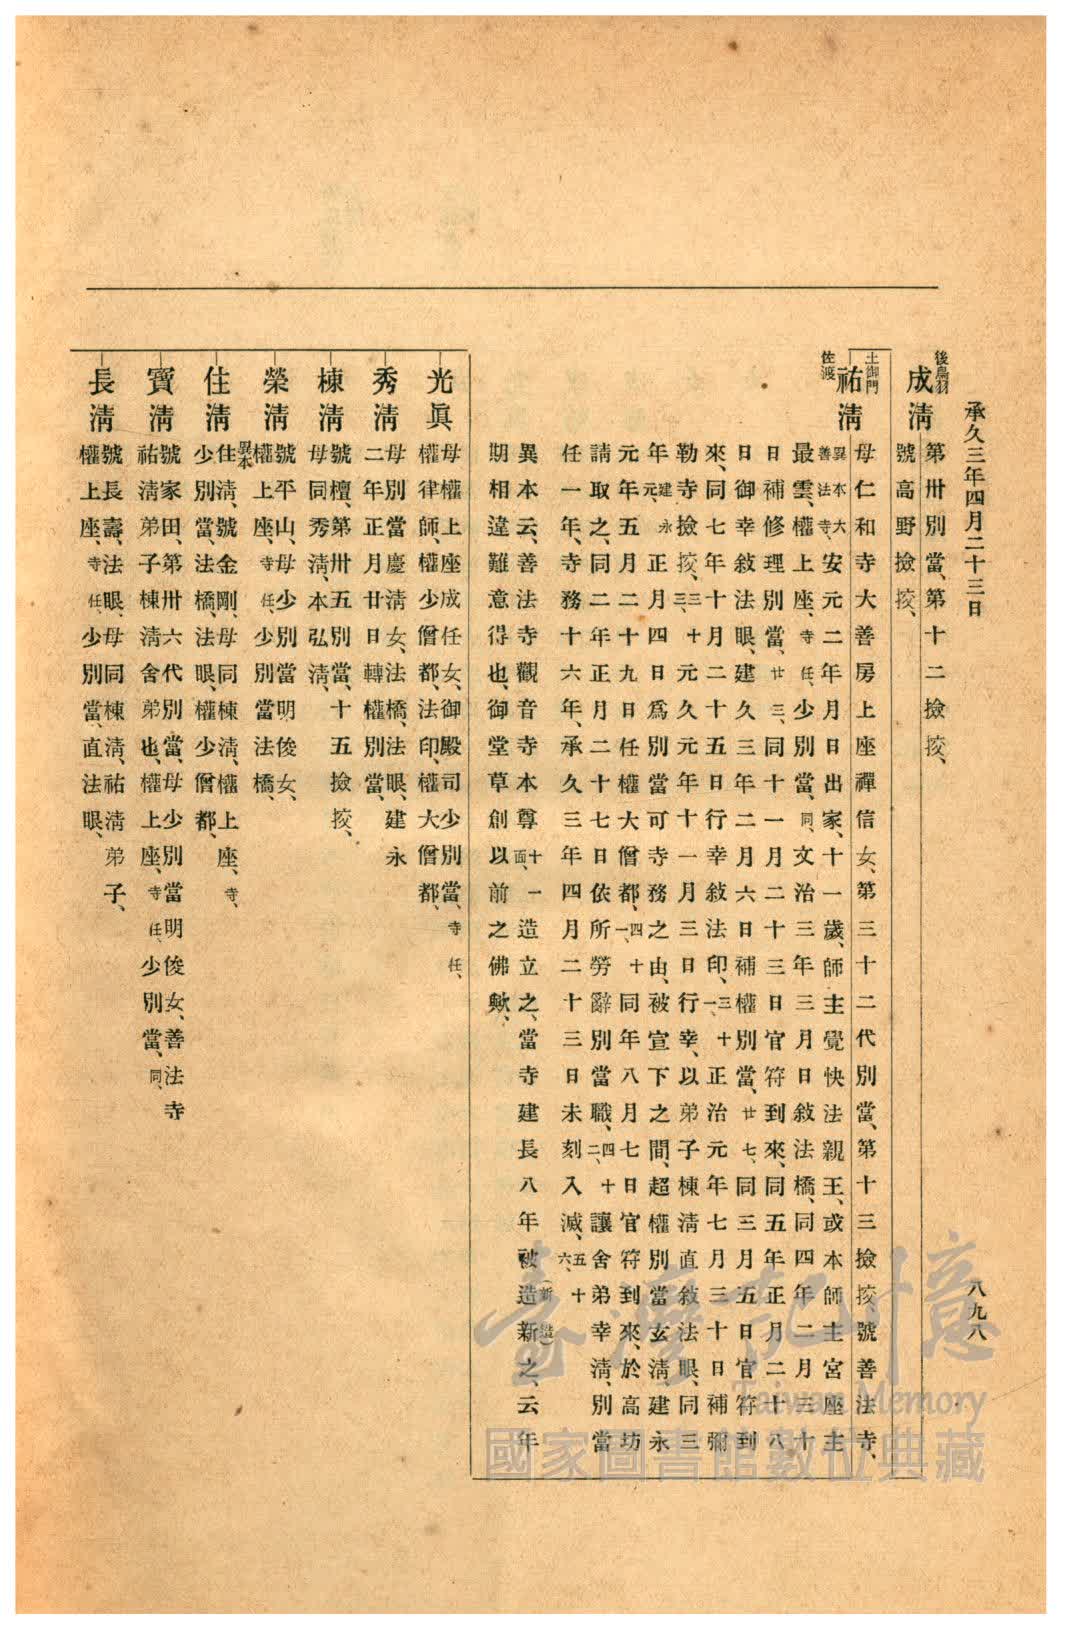 承久三年四月二十三日
八九八
後鳥羽
成淸
第卅別當、第十二撿挍、
號高野撿挍、
土御門
佐渡
祐淸
母仁和寺大善房上座禪信女、第三十二代別當、第十三撿挍、號善法寺、
異本大善法寺、安元二年月日出家、十一歲、師主覺快法親王、或本師主宮座主
最雲、權上座、寺任、少別當、同、文治三年三月日敍法橋、同四年二月三十
日補修理別當、廿三、同十一月二十三日官符到來、同五年正月二十八
日御幸敍法眼、建久三年二月六日補權別當、廿七、同三月五日官符到
來、同七年十月二十五日行幸敍法印、三十一、正治元年七月三十日補彌
勒寺撿挍、三十三、元久元年十一月三日行幸、以弟子棟淸直敍法眼、同三
年建永元、正月四日爲別當可寺務之由、被宣下之間、超權別當玄淸、建永
元年五月二十九日任權大僧都、四十一、同年八月七日官符到來、於高坊
請取之、同二年正月二十七日依所勞辭別當職、四十二、讓舍弟幸淸、別當
任一年、寺務十六年、承久三年四月二十三日未刻入滅、五十六、
異本云、善法寺觀音寺本尊十一面、造立之、當寺建長八年被造新(新造)之、云年
期相違難意得也、御堂草創以前之佛歟、
光眞
母權上座成任女、御殿司少別當、寺任、
權律師、權少僧都、法印、權大僧都、
秀淸
母別當慶淸女、法橋、法眼、建永
二年正月廿日轉權別當、
棟淸
號檀、第卅五別當、十五撿挍、
母同秀淸、本弘淸、
榮淸
號平山、母少別當明俊女、
權上座、寺任、少別當、法橋、
住淸
異本
住淸、號金剛、母同棟淸、權上座、寺、
少別當、法橋、法眼、權少僧都、
寶淸
號家田、第卅六代別當、母少別當明俊女、善法寺
祐淸弟子棟淸舍弟也、權上座、寺任、少別當、同、
長淸
號長壽、法眼、母同棟淸、祐淸弟子、
權上座、寺任、少別當、直法眼、
臺灣記憶
Taiwan Memory
國家圖書館數位典藏